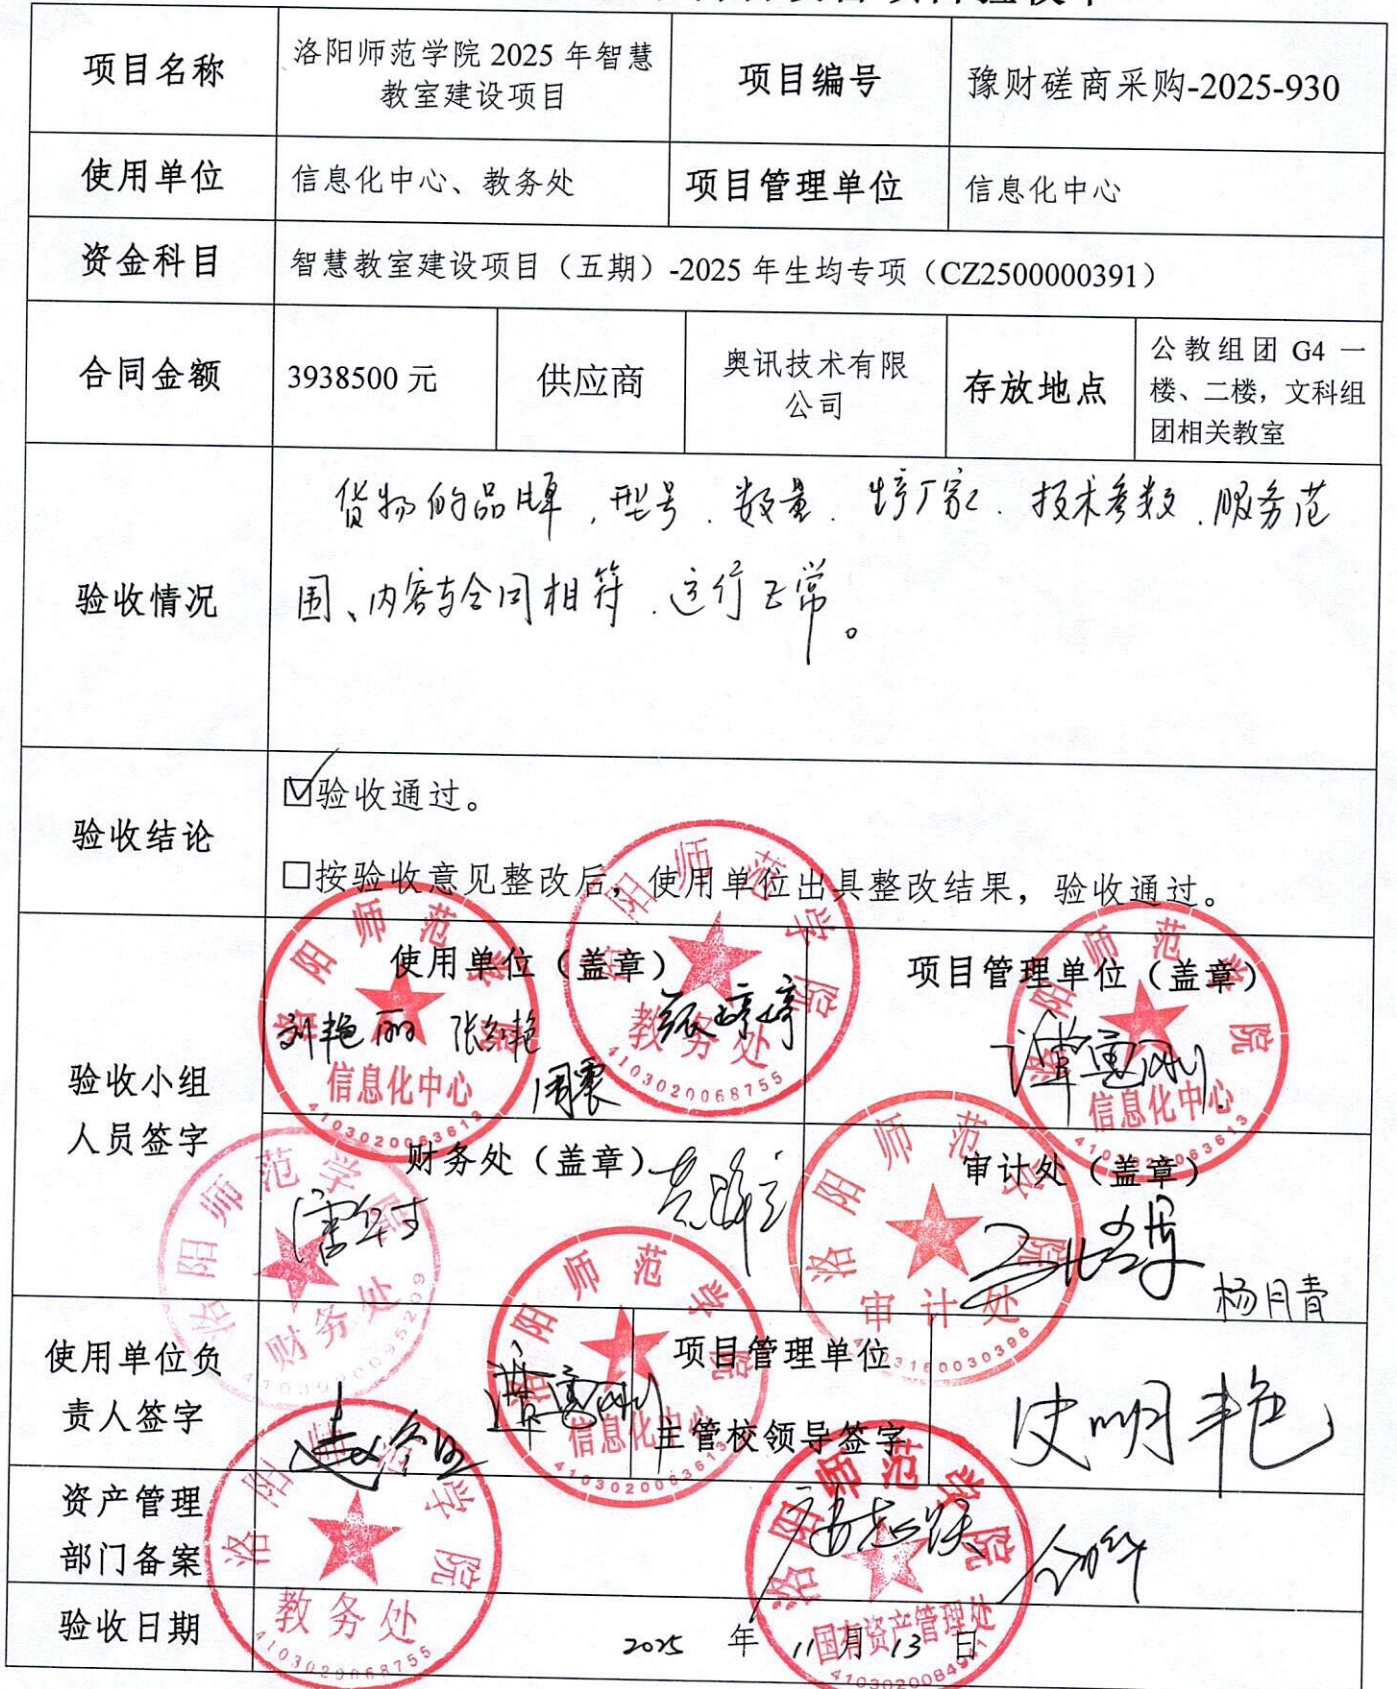 项目名称
洛阳师范学院 2025 年智慧
教室建设项目
项目编号
豫财磋商采购-2025-930
使用单位
信息化中心、教务处
项目管理单位
信息化中心
资金科目
智慧教室建设项目（五期）-2025 年生均专项（CZ2500000391）
合同金额
3938500 元
供应商
奥讯技术有限
公司
存放地点
公教组团 G4 一
楼、二楼，文科组
团相关教室
验收情况
货物的品牌、型号、数量、生产厂家、技术参数、服务范
围、内容与合同相符、运行正常。
验收结论
☑验收通过。
□按验收意见整改后，使用单位出具整改结果，验收通过。
验收小组
人员签字
使用单位（盖章）
刘艳丽 张红艳
周震
洛阳师范学院
信息化中心
4103020063613
洛阳师范学院
教务处
4103020068755
项目管理单位（盖章）
洛阳师范学院
信息化中心
4103020063613
财务处（盖章）
洛阳师范学院
财务处
审计处（盖章）
洛阳师范学院
审计处
杨月青
使用单位负
责人签字
洛阳师范学院
信息化中心
4103020063613
项目管理单位
主管校领导签字
史明艳
资产管理
部门备案
洛阳师范学院
教务处
4103020068755
洛阳师范学院
国有资产管理处
验收日期
2025 年 11 月 13 日